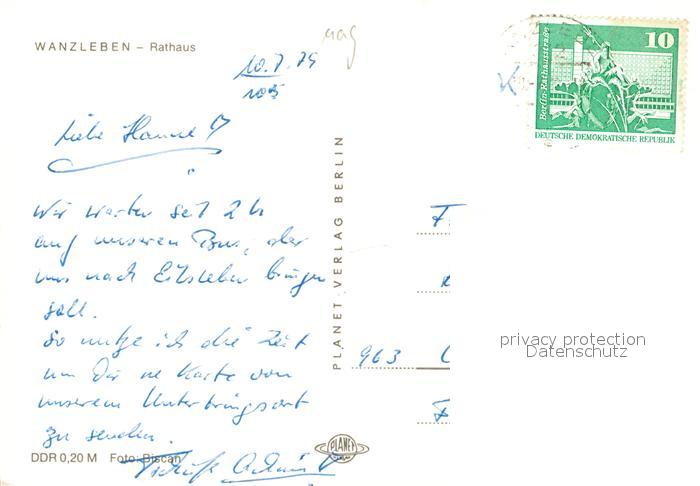 WANZLEBEN – Rathaus
10.7.79
Liebe
Wir warten seit 2 h
auf unseren Bus, der
uns nach Eilsleben bringen
soll.
So nutze ich die Zeit
um Dir ne Karte von
unserem Unterbringsort
zu senden.
DDR 0,20 M Foto: Biscan
PLANET-VERLAG BERLIN
PLANET
963
10
Berlin-Rathausstraße
DEUTSCHE DEMOKRATISCHE REPUBLIK
privacy protection
Datenschutz